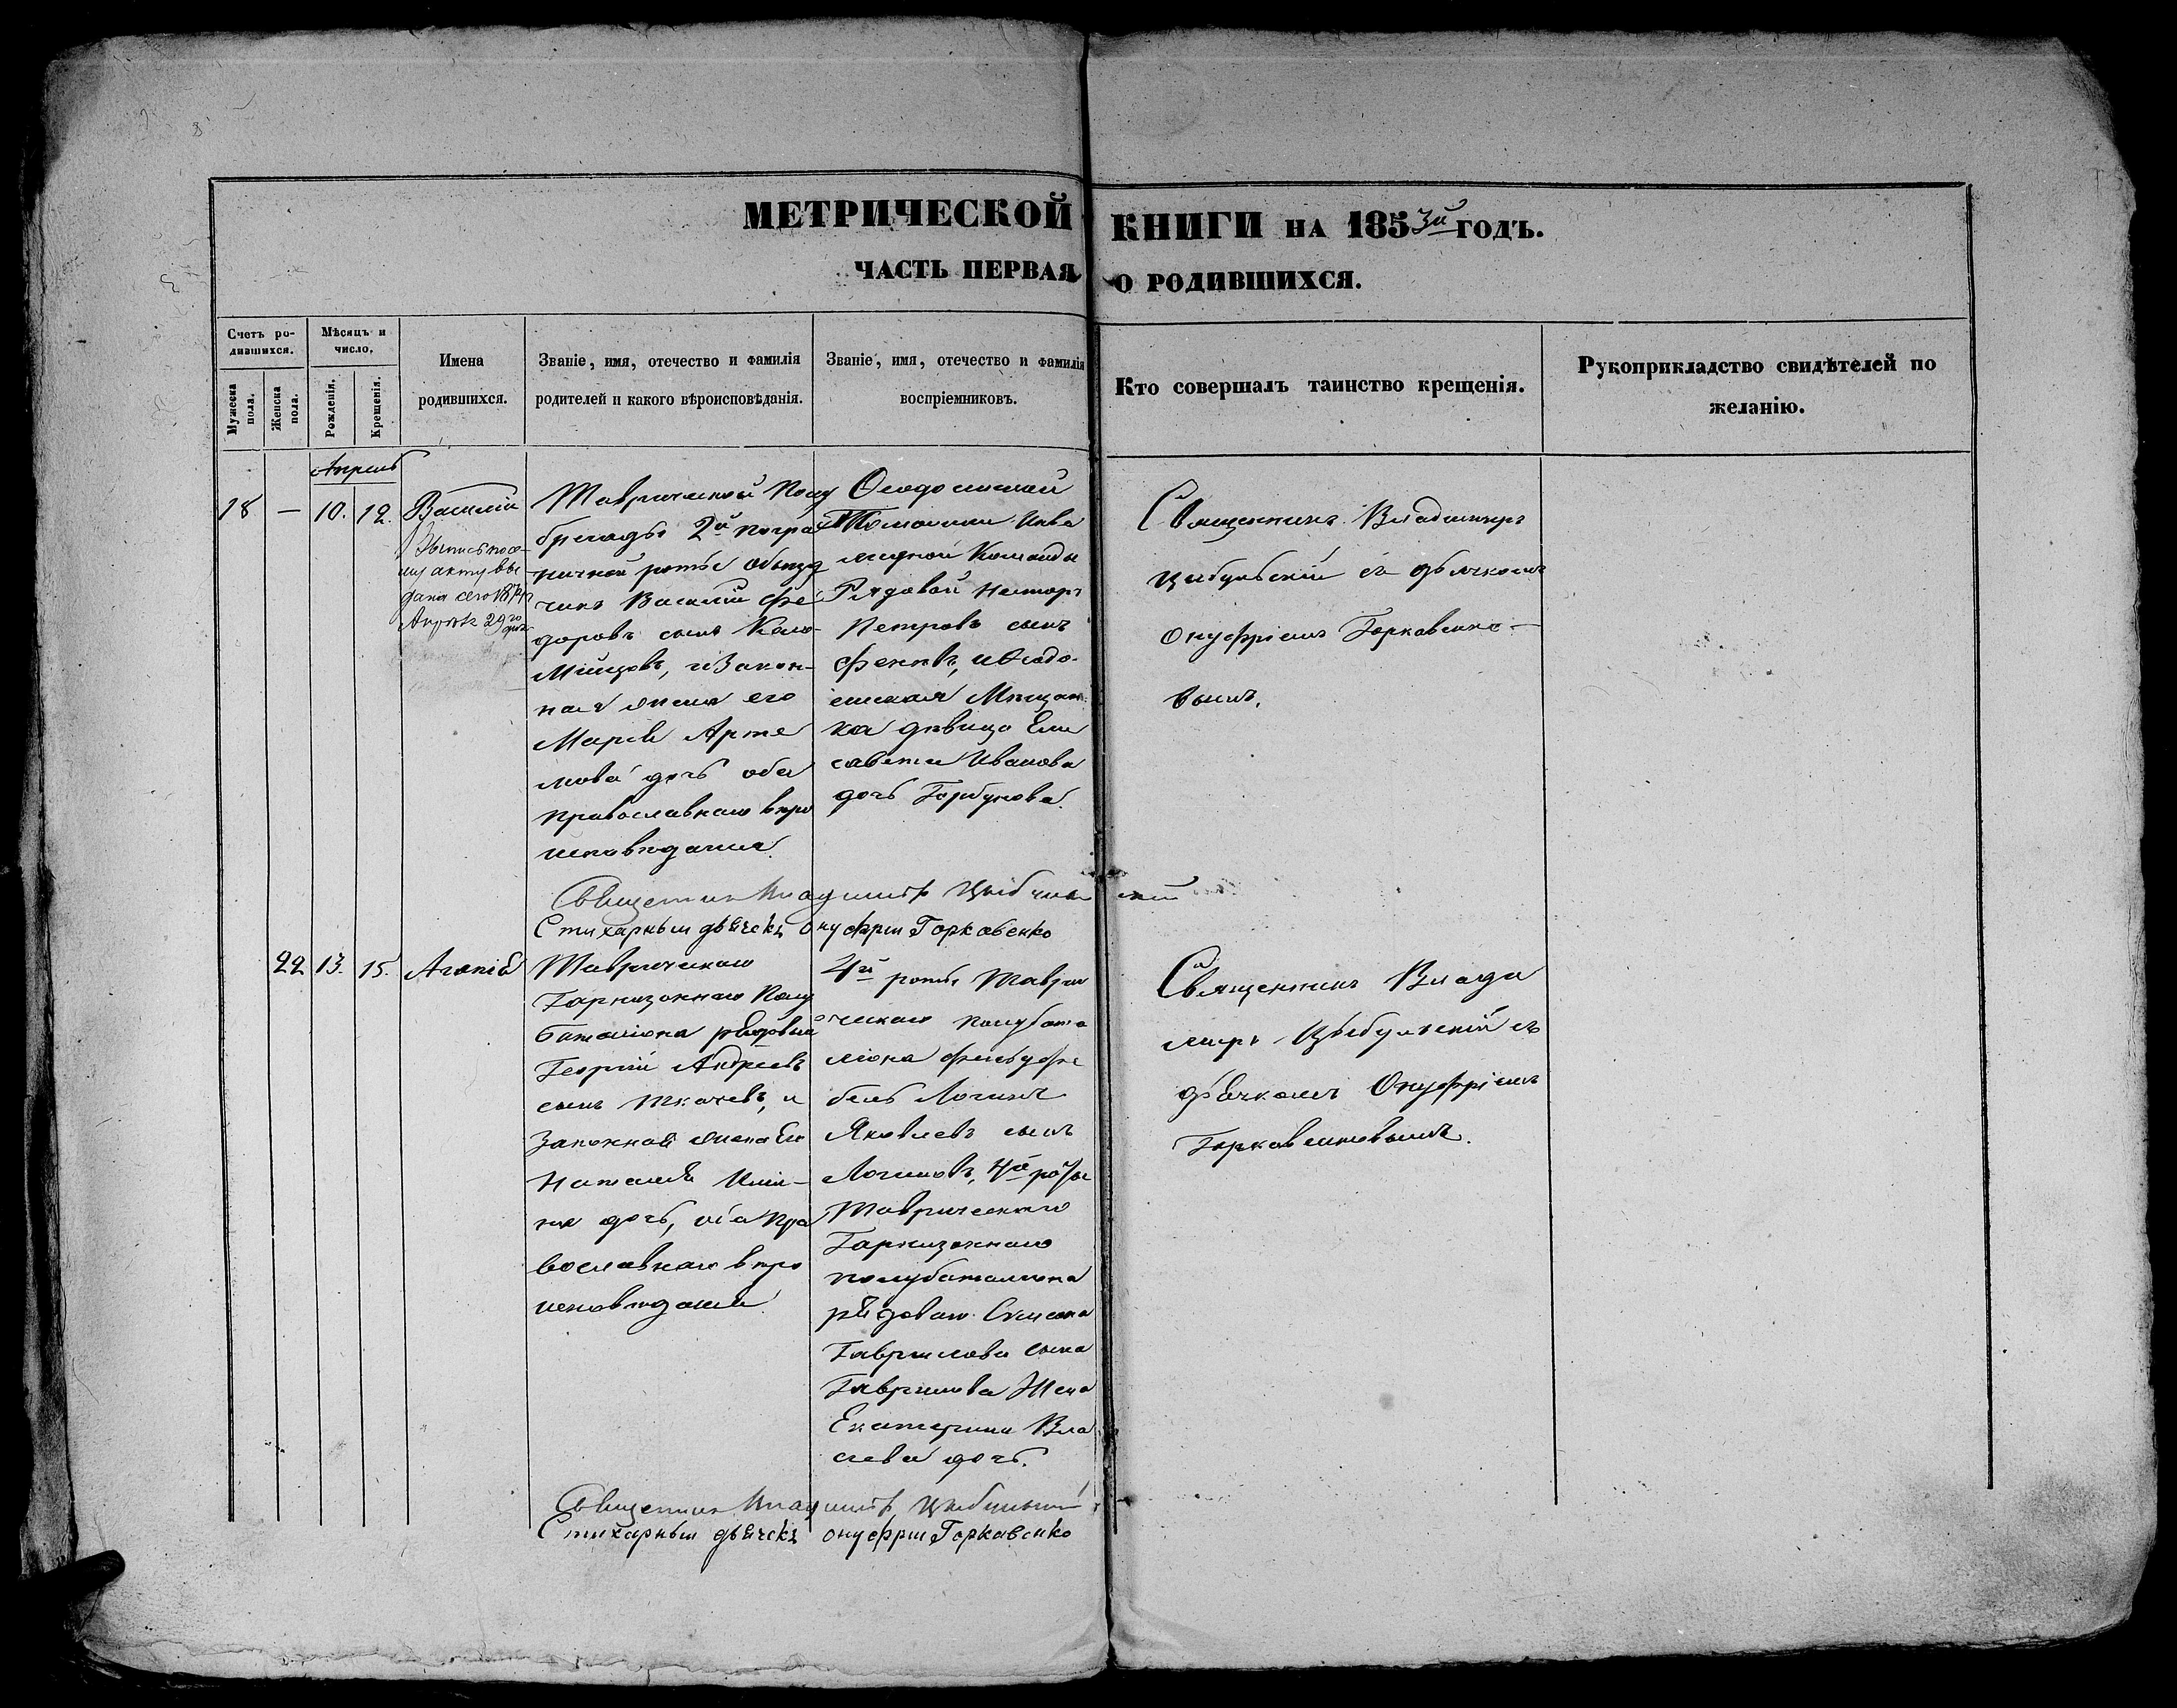 МЕТРИЧЕСКОЙ КНИГИ НА 1853й ГОДЪ.
ЧАСТЬ ПЕРВАЯ О РОДИВШИХСЯ.
Счетъ ро-
дившихся.
Мужеска пола.
Женска пола.
Мѣсяцъ и
число.
Рожденія.
Крещенія.
Имена
родившихся.
Званіе, имя, отечество и фамилія
родителей и какого вѣроисповѣданія.
Званіе, имя, отечество и фамилія
воспріемниковъ.
Кто совершалъ таинство крещенія.
Рукоприкладство свидѣтелей по
желанію.
Апрель
18 — 10. 12.
Василій
Выпись по се-
му акту вы-
дана сего
Апрѣля 29го дня
Таврической Полу
бригады 2й погра
ничной роты объезд
чикъ Василій Фе
доровъ сынъ Коло-
мійцовъ, и Закон-
ная жена его
Марія Арте
мова дочь оба
православнаго вѣро
исповѣданія.
Ѳеодосійской
Инва
лидной Команды
Рядовой Несторъ
Петровъ сынъ
и Ѳеодо-
сійская Мѣщан
ка дѣвица Ели
савета Иванова
дочь Горбунова.
Священникъ Владимиръ
Цыбульскій съ дьячкомъ
Онуфріемъ Горкавенко-
вымъ.
Священникъ Владимиръ Цыбульскій
Стихарный дьячекъ Онуфрій Горкавенко
22 13. 15.
Агапія
Таврическаго
Гарнизоннаго Полу
баталіона рядовый
Георгій Андреевъ
сынъ Ткачевъ, и
Законная жена его
Наталія
на дочь, оба пра
вославнаго вѣро
исповѣданія.
4й роты Таври
ческаго полубата
ліона фельдфе
бель Логинъ
Яковлевъ сынъ
Логиновъ, 4й роты
Таврическаго
Гарнизоннаго
полубаталіона
рядоваго
Гаврилова сына
Гаврилова Жена
Екатерина Вла
сьева дочь.
Священникъ Влади
миръ Цыбульскій съ
дьячкомъ Онуфріемъ
Горкавенковымъ.
Священникъ Владимиръ Цыбульскій
Стихарный дьячекъ Онуфрій Горкавенко